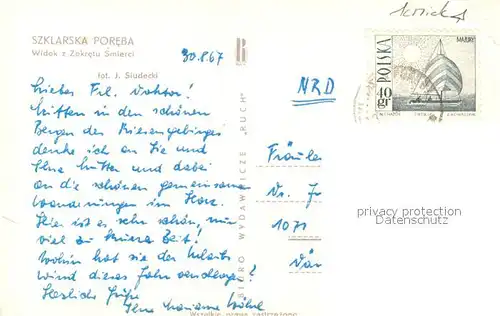 SZKLARSKA PORĘBA
Widok z Zakrętu Śmierci
fot. J. Siudecki
30.8.67
Liebes Frl. Doktor!
Mitten in den schönen
Bergen des Riesengebirges
denke ich an Sie und
Ihre Mutter und dabei
an die schönen gemeinsamen
Wanderungen im Harz.
Hier ist es sehr schön, nur
viel zu kurze Zeit!
Wohin hat sie der Urlaub
dieses Jahr
Herzliche Grüße
Ihre Marianne
BIURO WYDAWNICZE „RUCH"
Wszelkie prawa zastrzeżone
MAZURY
POLSKA
40 gr
NRD
Fräulein
Dr. J
1071
privacy protection
Datenschutz